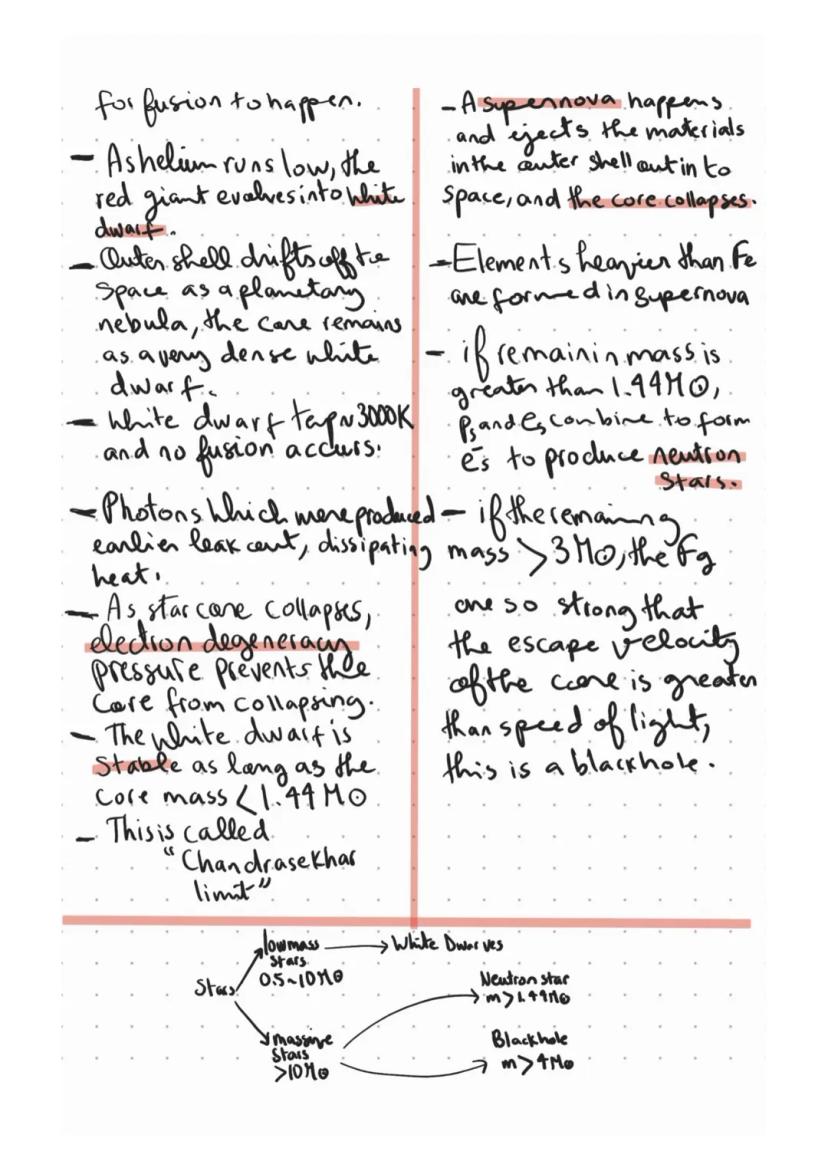 for fusion to happen.
- As helium runs low, the
red giant evolves into white
dwarf.
- Outer shell drifts off to
space as a planetary
nebula, the core remains
as a very dense white
dwarf.
- White dwarf temp ~ 3000K
and no fusion occurs.
- Photons which were produced
earlier leak out, dissipating
heat.
- As star core collapses,
electron degeneracy
pressure prevents the
core from collapsing.
- The white dwarf is
stable as long as the
core mass < 1.44 M☉
- This is called
"Chandrasekhar
limit"
- A supernova happens
and ejects the materials
in the outer shell out in to
space, and the core collapses.
- Elements heavier than Fe
are formed in supernova
- if remainin mass is
greater than 1.44M☉,
Ps and es combine to form
e's to produce neutron
stars.
- if the remaining
mass > 3M☉, the Fg
are so strong that
the escape velocity
of the core is greater
than speed of light,
this is a blackhole.
low mass → White Dwarves
stars
0.5~10M☉
Stars
Neutron star
m>1.44M☉
massive
stars
>10M☉
Blackhole
m>4M☉